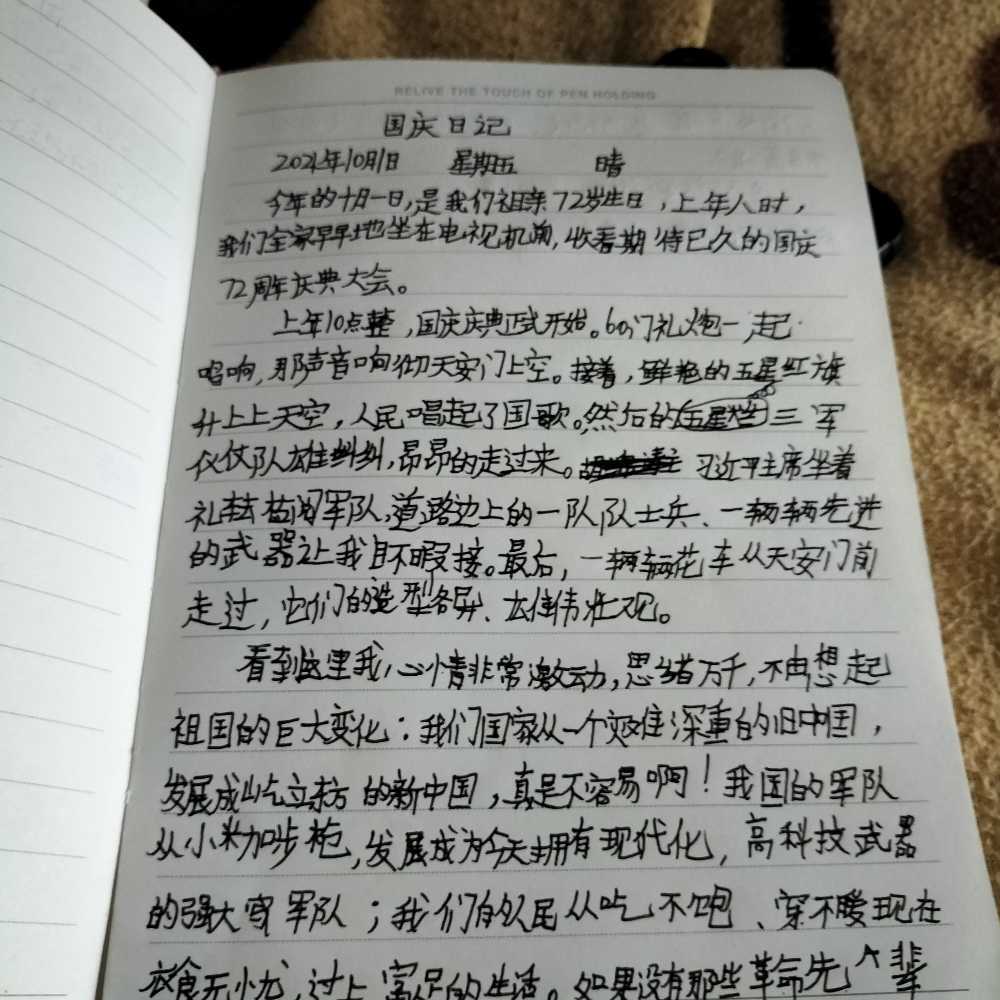 RELIVE THE TOUCH OF PEN HOLDING
国庆日记
2021年10月1日 星期五 晴
今年的十月一日,是我们祖亲72岁生日,上年八时,
我们全家早早地坐在电视机前,收看期待已久的国庆
72周年庆典大会。
上年10点整,国庆庆典正式开始。60门礼炮一起
鸣响,那声音响彻天安门上空。接着,鲜艳的五星红旗
升上上天空,人民唱起了国歌。然后的三军
仪仗队雄纠纠,昂昂的走过来。习近平主席坐着
礼车检阅军队,道路边上的一队队士兵、一辆辆先进
的武器让我目不暇接。最后,一辆辆花车从天安门前
走过,它们的造型各异、雄伟壮观。
看到这里我,心情非常激动,思绪万千,不由想起
祖国的巨大变化:我们国家从一个灾难深重的旧中国,
发展成屹立东方的新中国,真是不容易啊!我国的军队
从小米加步枪,发展成为今天拥有现代化,高科技武器
的强大军队;我们的人民从吃不饱、穿不暖现在
衣食无忧,过上富足的生活。如果没有那些革命先人辈